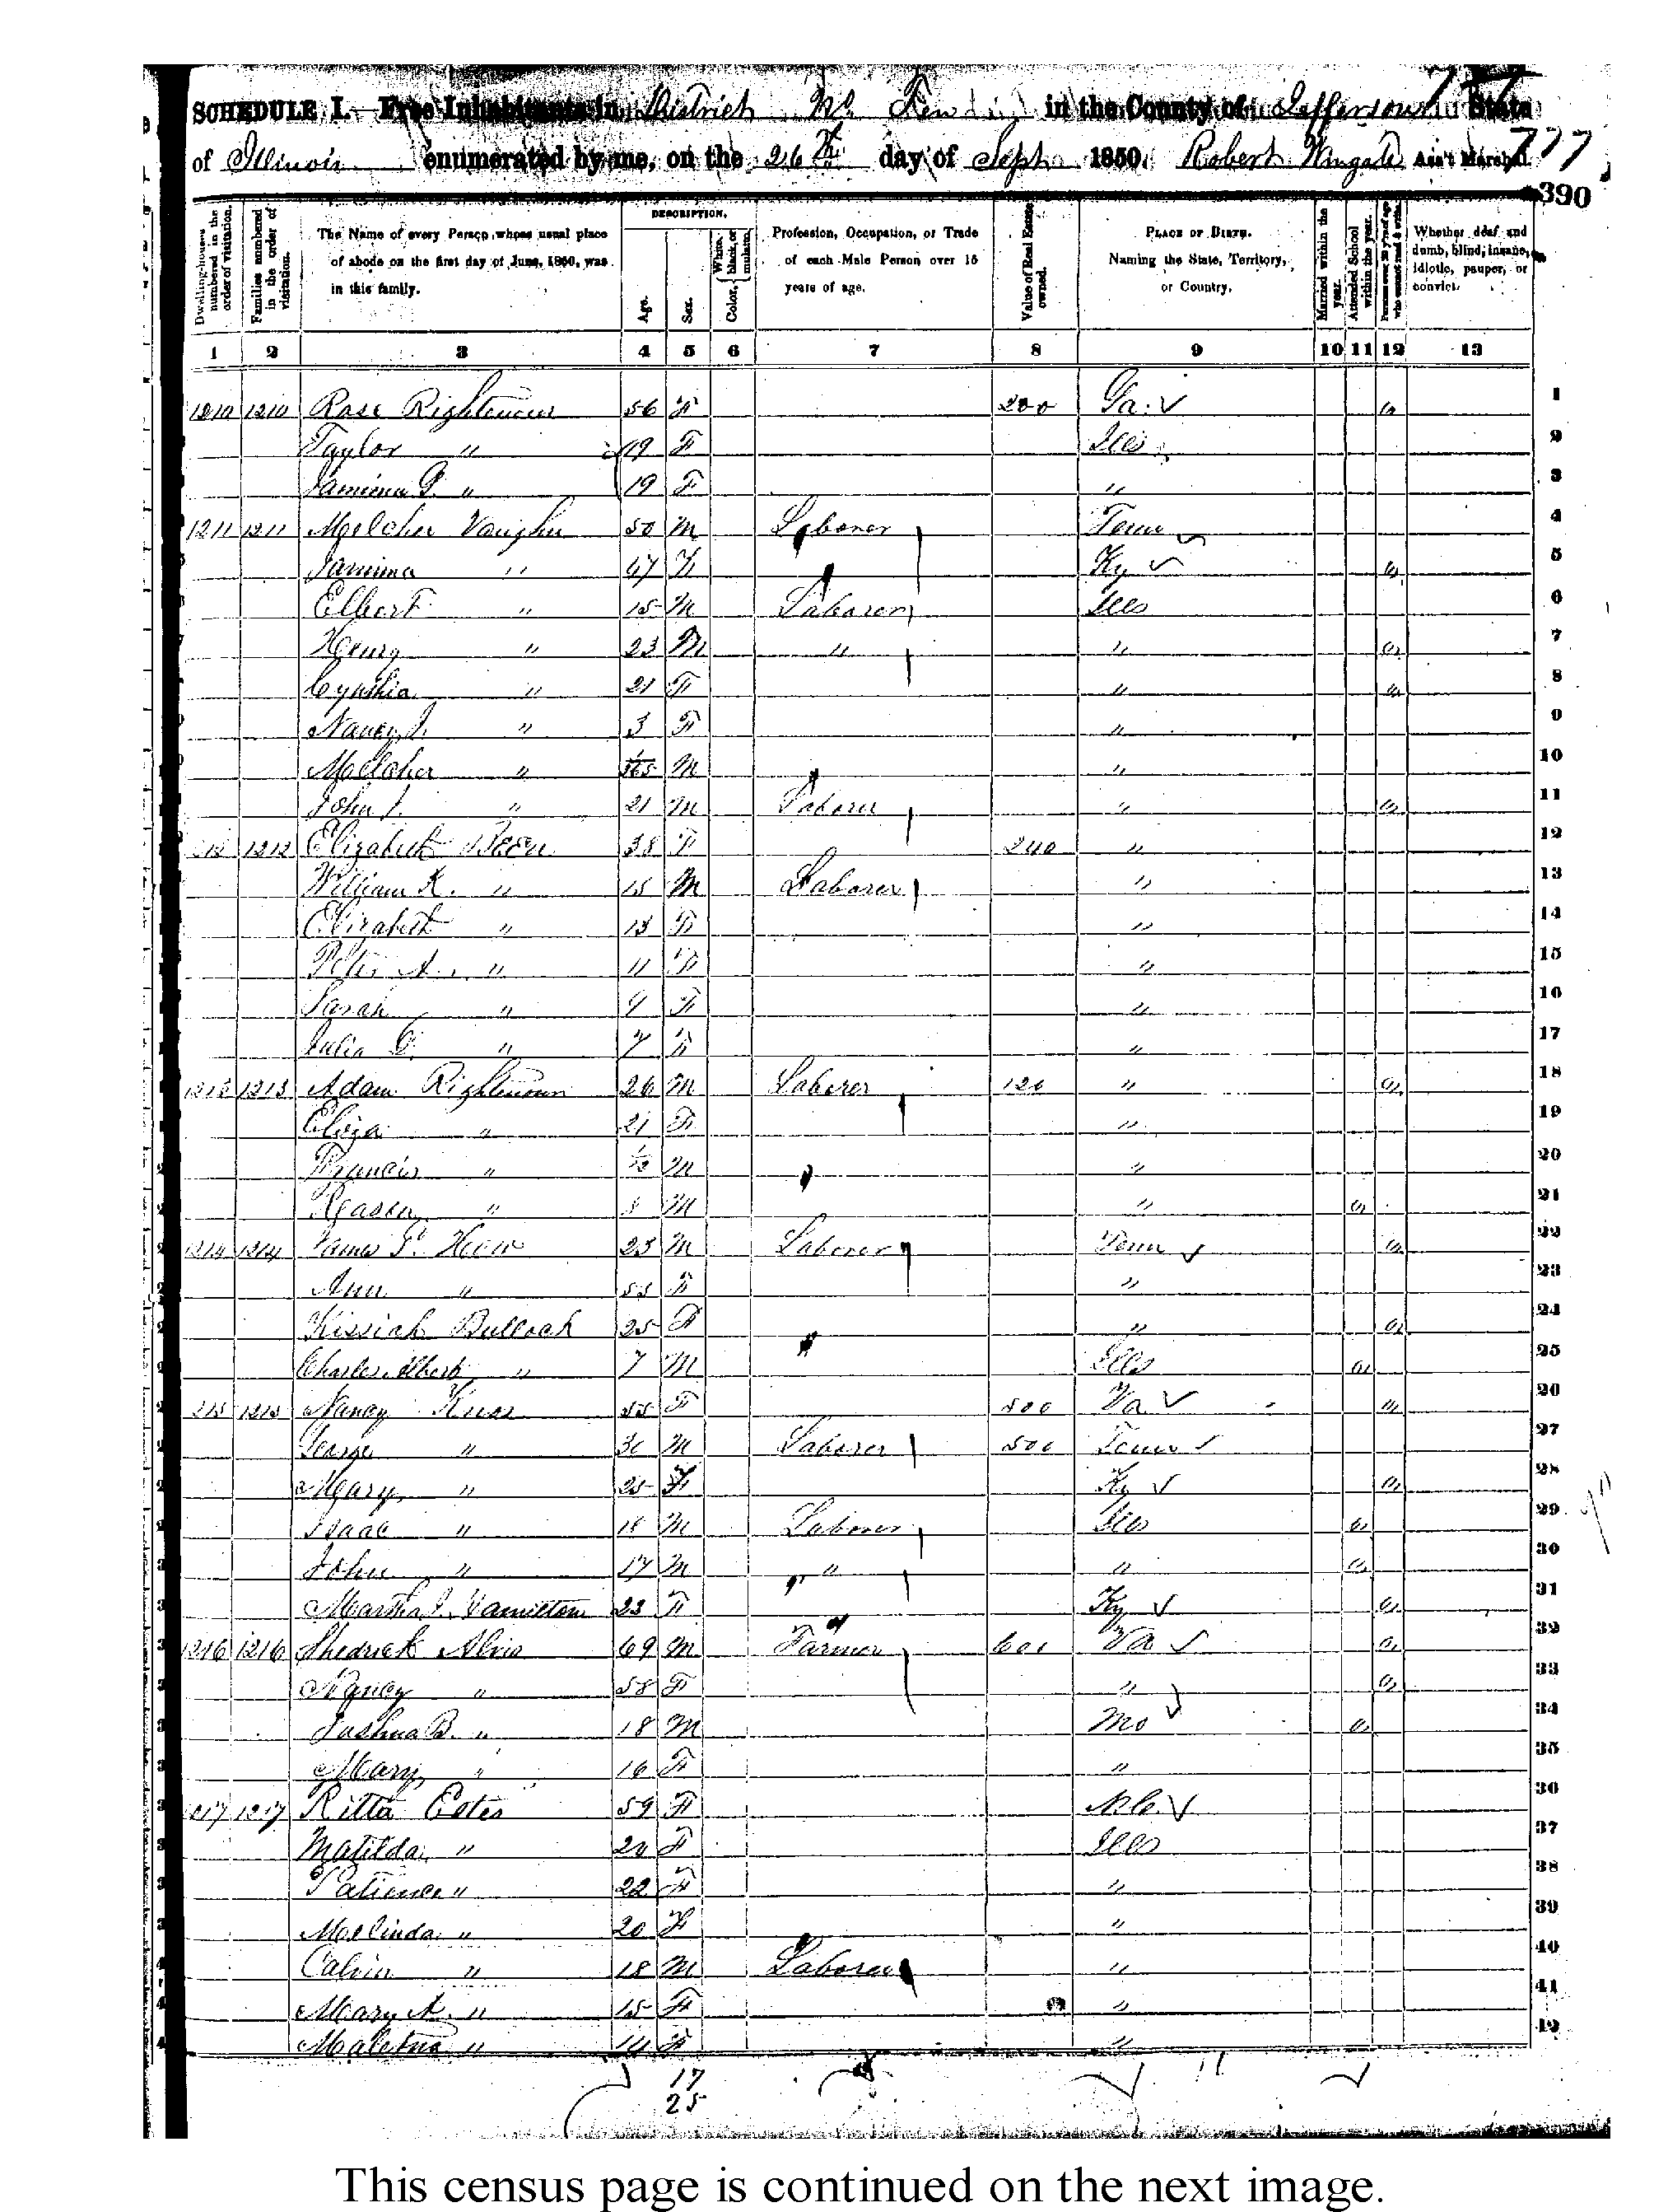 SCHEDULE I. Free Inhabitants in District No Ten in the County of Jefferson State
of Illinois enumerated by me, on the 26th day of Sept 1850. Robert Wingate Ass't Marshal. 777
390
DESCRIPTION.
Dwelling-houses numbered in the order of visitation.
Families numbered in the order of visitation.
The Name of every Person whose usual place of abode on the first day of June, 1850, was in this family.
Age.
Sex.
Color, { White, black, or mulatto.
Profession, Occupation, or Trade of each Male Person over 15 years of age.
Value of Real Estate owned.
PLACE OF BIRTH. Naming the State, Territory, or Country.
Married within the year.
Attended School within the year.
Persons over 20 y'rs of age who cannot read & write.
Whether deaf and dumb, blind, insane, idiotic, pauper, or convict.
1 2 3 4 5 6 7 8 9 10 11 12 13
1210 1210 Rase Rightenour 56 F 200 1
Taylor " 19 F Ills 2
Jamima P. " 19 F " 3
1211 1211 Melcher Vaughn 50 M Laborer Tenn 4
Jamima " 47 F Ky 5
Elbert " 15 M Laborer Ills 6
Henry " 23 M " " 7
Cynthia " 21 F " 8
Nancy J. " 3 F " 9
Melcher " M " 10
John J. " 21 M Laborer " 11
1212 1212 Elizabeth 38 F 240 " 12
William K. " 15 M Laborer " 13
Elizabeth " 13 F " 14
Peter A. " 11 F " 15
Sarah " 9 F " 16
Julia C. " 7 F " 17
1213 1213 Adam Rightenour 26 M Laborer 120 " 18
Eliza " 21 F " 19
Francis " M " 20
" M " 21
1214 1214 James P. 23 M Laborer Tenn 22
Ann " 53 F " 23
Kissiah Bullock 25 F " 24
Charles Albert " 7 M Ills 25
1215 1215 Nancy 55 F 500 Va 26
George " 30 M Laborer 500 Tenn 27
Mary " 25 F Ky 28
Isaac " 18 M Laborer Ills 29
John " 17 M " " 30
Martha J. Hamilton 23 F Ky 31
1216 1216 Shedrick Alvis 69 M Farmer 600 Va 32
Nancy " 58 F " 33
Joshua B. " 18 M Mo 34
Mary " 16 F " 35
1217 1217 Ritta Estes 59 F N.C. 36
Matilda " 24 F Ills 37
Patience " 22 F " 38
Melinda " 20 F " 39
Calvin " 18 M Laborer " 40
Mary A. " 15 F " 41
" 14 F " 42
17
25
This census page is continued on the next image.